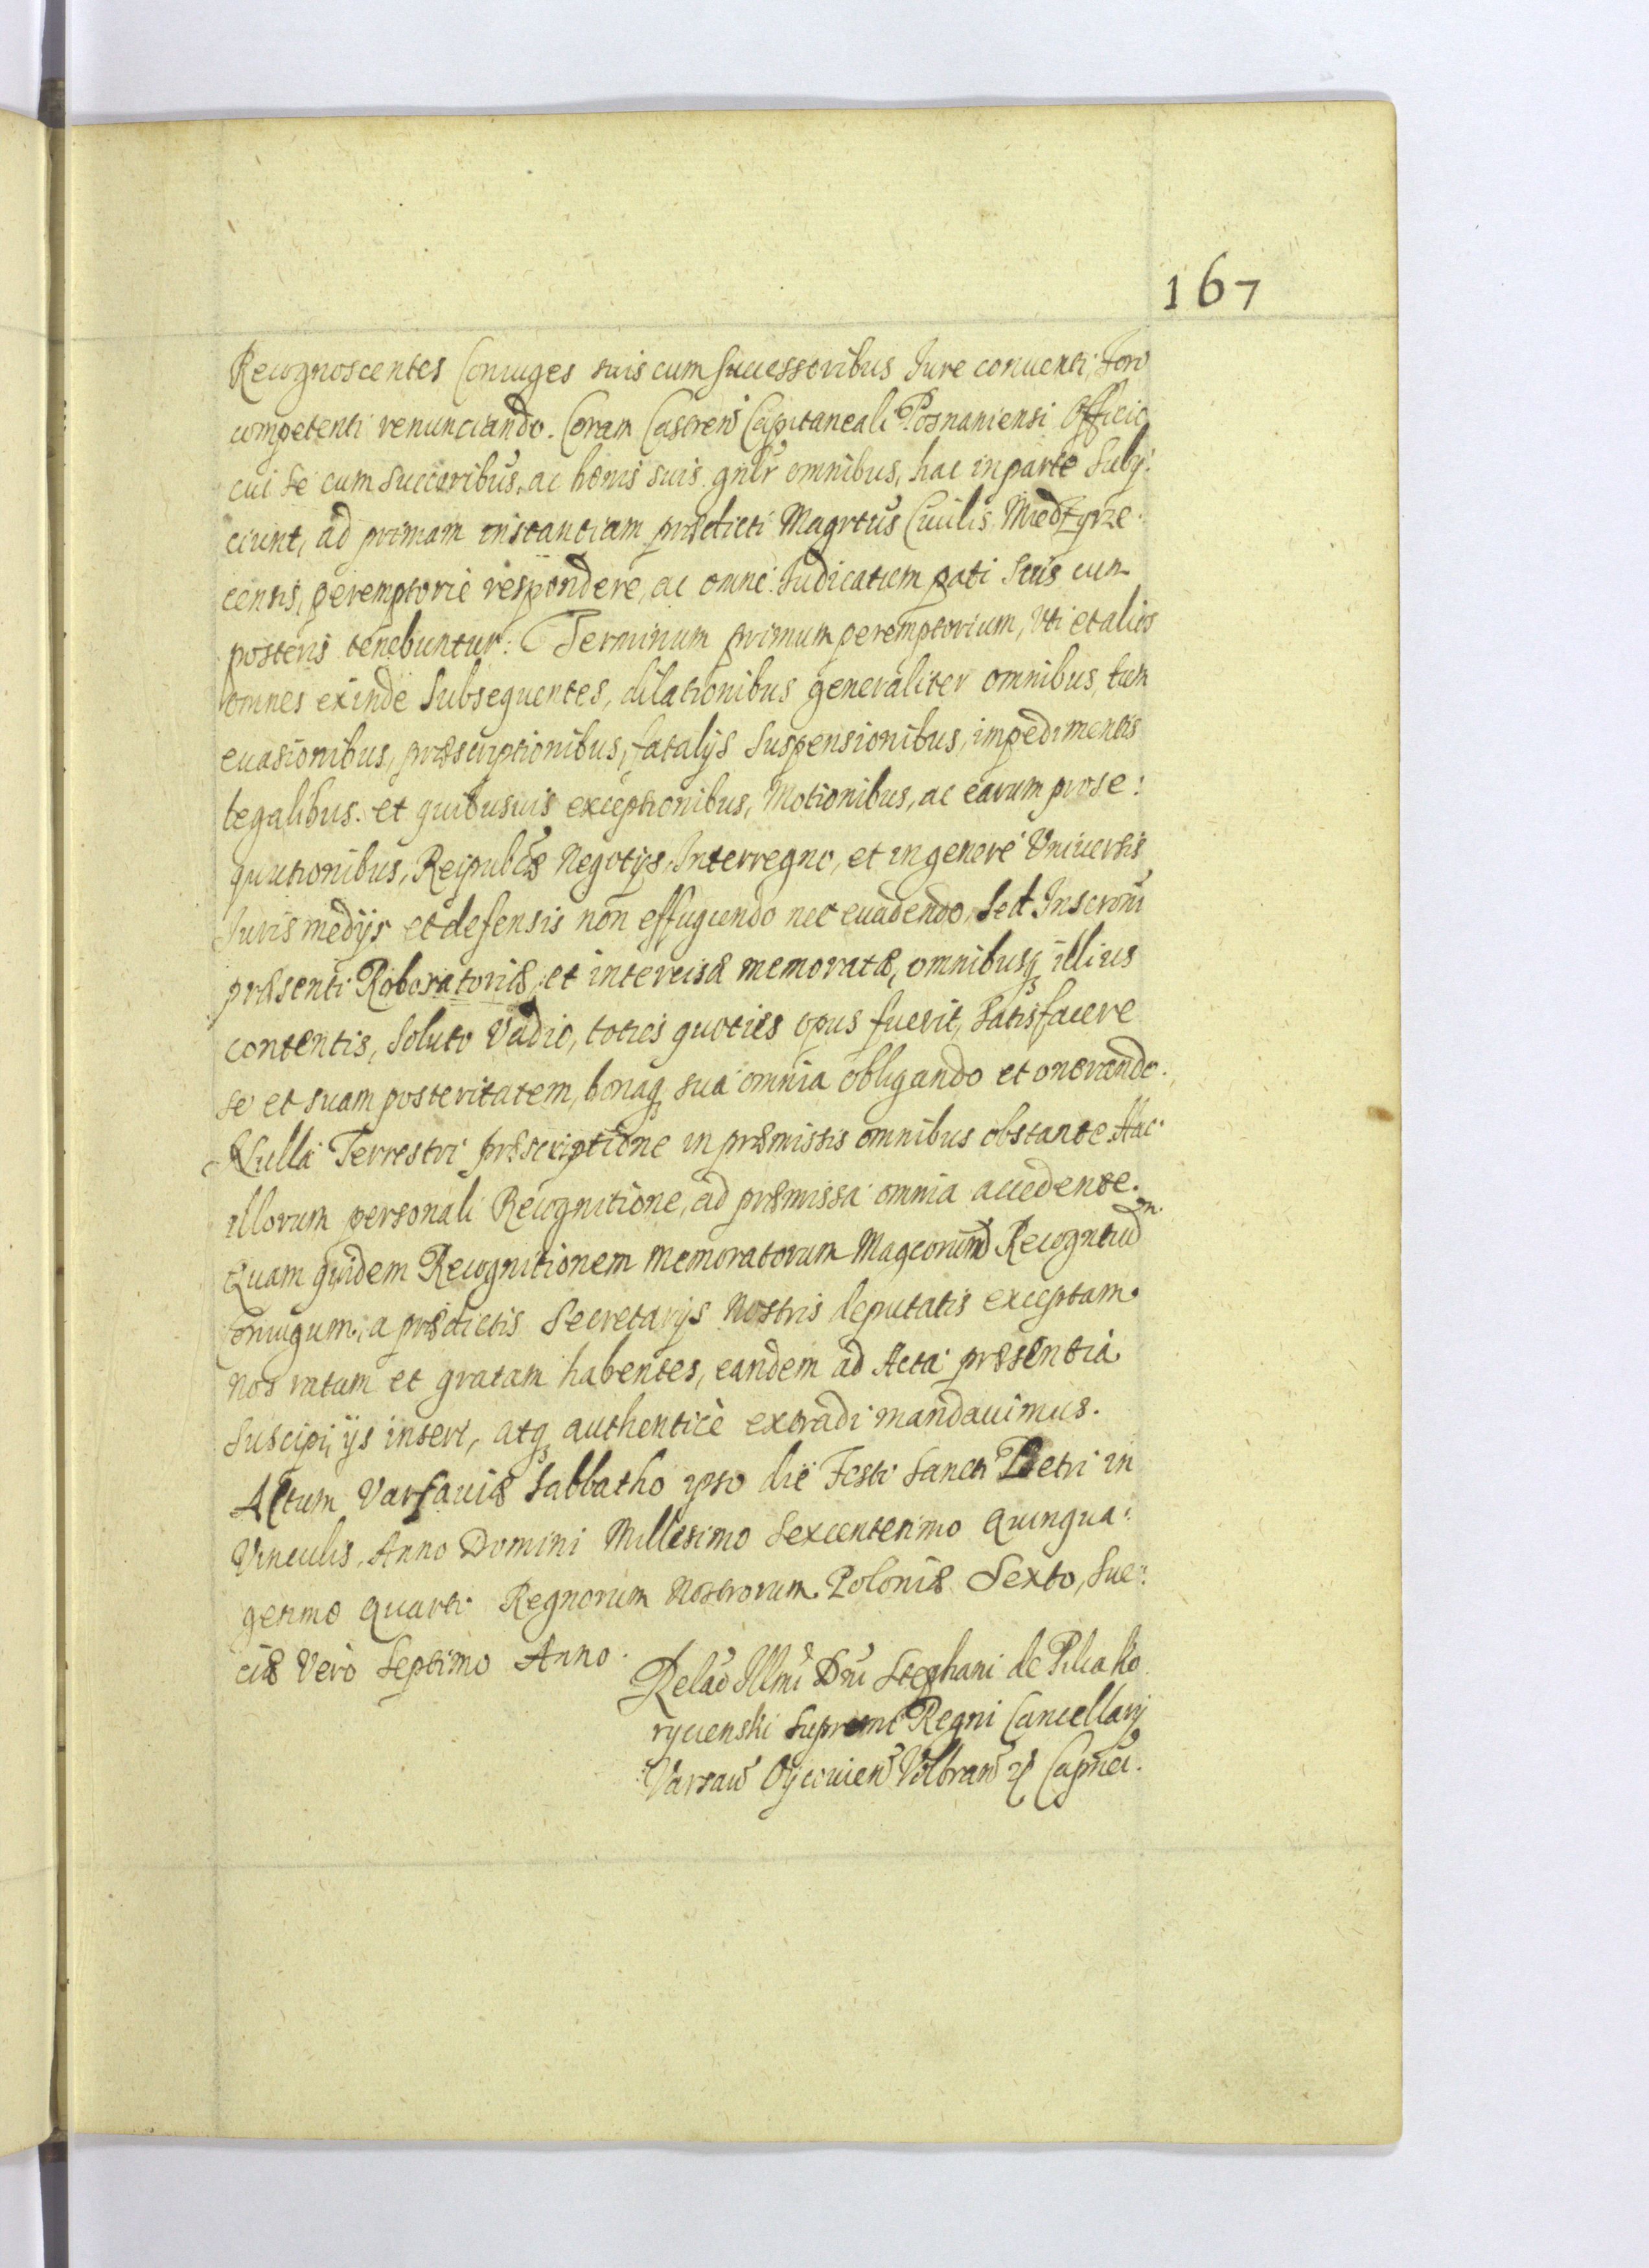 167
Recognoscentes Coniuges suis cum Successoribus Jure conuenti, Foro
competenti renunciando. Coram Castren̄ Capitaneali Posnaniensi Officio
cui se cum Succoribus, ac bonis suis gnl̄r omnibus, hac in parte Subij:
ciunt, ad primam instantiam prædicti Magrtus Ciuilis Miedzyrze:
censis, peremptorie respondere, ac omne Iudicatum pati Suis cum
posteris tenebuntur. Terminum primum peremptorium, Vti et alios
omnes exinde Subsequentes, dilationibus generaliter omnibus, tum
euasionibus, præscriptionibus, fatalijs Suspensionibus, impedimentis
legalibus. et quibusuis exceptionibus, Motionibus, ac earum prose:
quutionibus, Reipublcæ Negotijs, Interregno, et in genere Vniuersis
Iuris medijs et defensis non effugiendo nec euadendo, Sed Inscrōni
præsenti Roboratoriæ, et intercisæ memoratæ, omnibusq illius
contentis, Soluto Vadio, toties quoties opus fuerit, Satisfacere
Se et suam posteritatem, bonaq sua omnia obligando et onerando.
Nulla Terrestri præscriptione in præmissis omnibus obstante. Hac
illorum personali Recognitione, ad præmissa omnia accedente.
Quam quidem Recognitionem memoratorum Magcorum Recogntium
Coniugum, a prædictis Secretarijs Nostris deputatis exceptam.
Nos ratam et gratam habentes, eandem ad Acta præsentia
Suscipi, ijs inseri, atq authenticè extradi mandauimus.
Actum Varsauiæ Sabbatho ipso die Festi Sancti Petri in
Vinculis, Anno Domini Millesimo Sexcentesimo Quinqua:
gesimo Quarto Regnorum Nostrorum Poloniæ Sexto, Sue:
ciæ Vero Septimo Anno.
Relāo Illmi Dni Stephani de Pilca Ko
rycienski Supremi Regni Cancellarij
Varsaw Oycouien Volbram & Capnei.